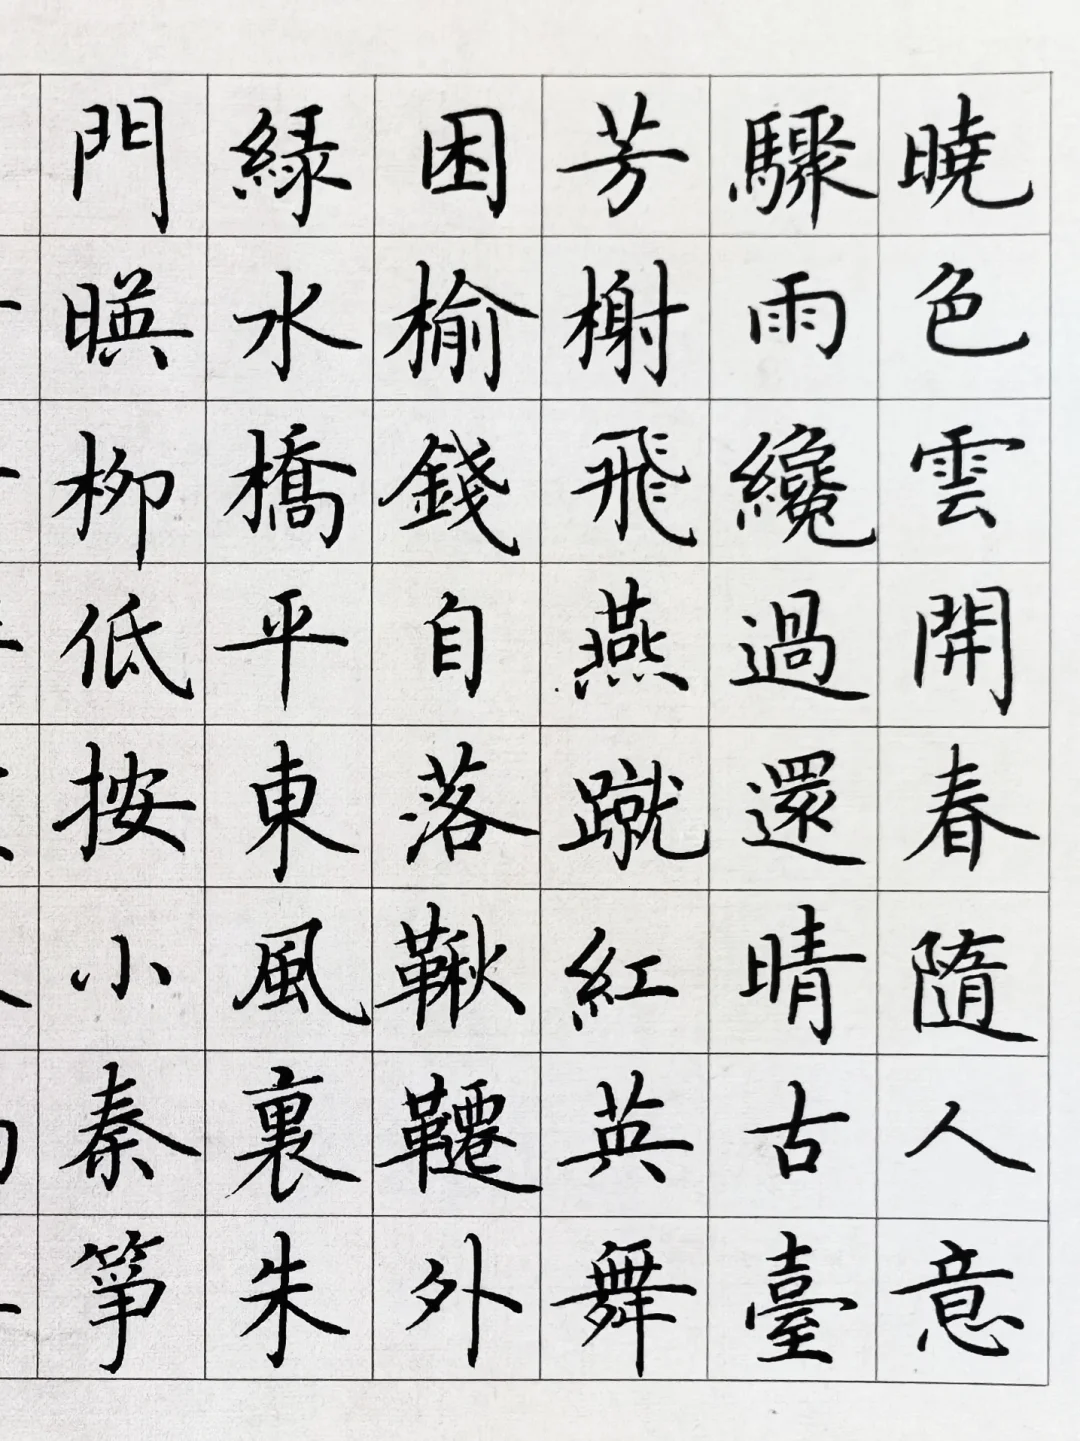 曉色雲開春隨人意
驟雨纔過還晴古臺
芳榭飛燕蹴紅英舞
困榆錢自落鞦韆外
緑水橋平東風裏朱
門暎柳低按小秦箏